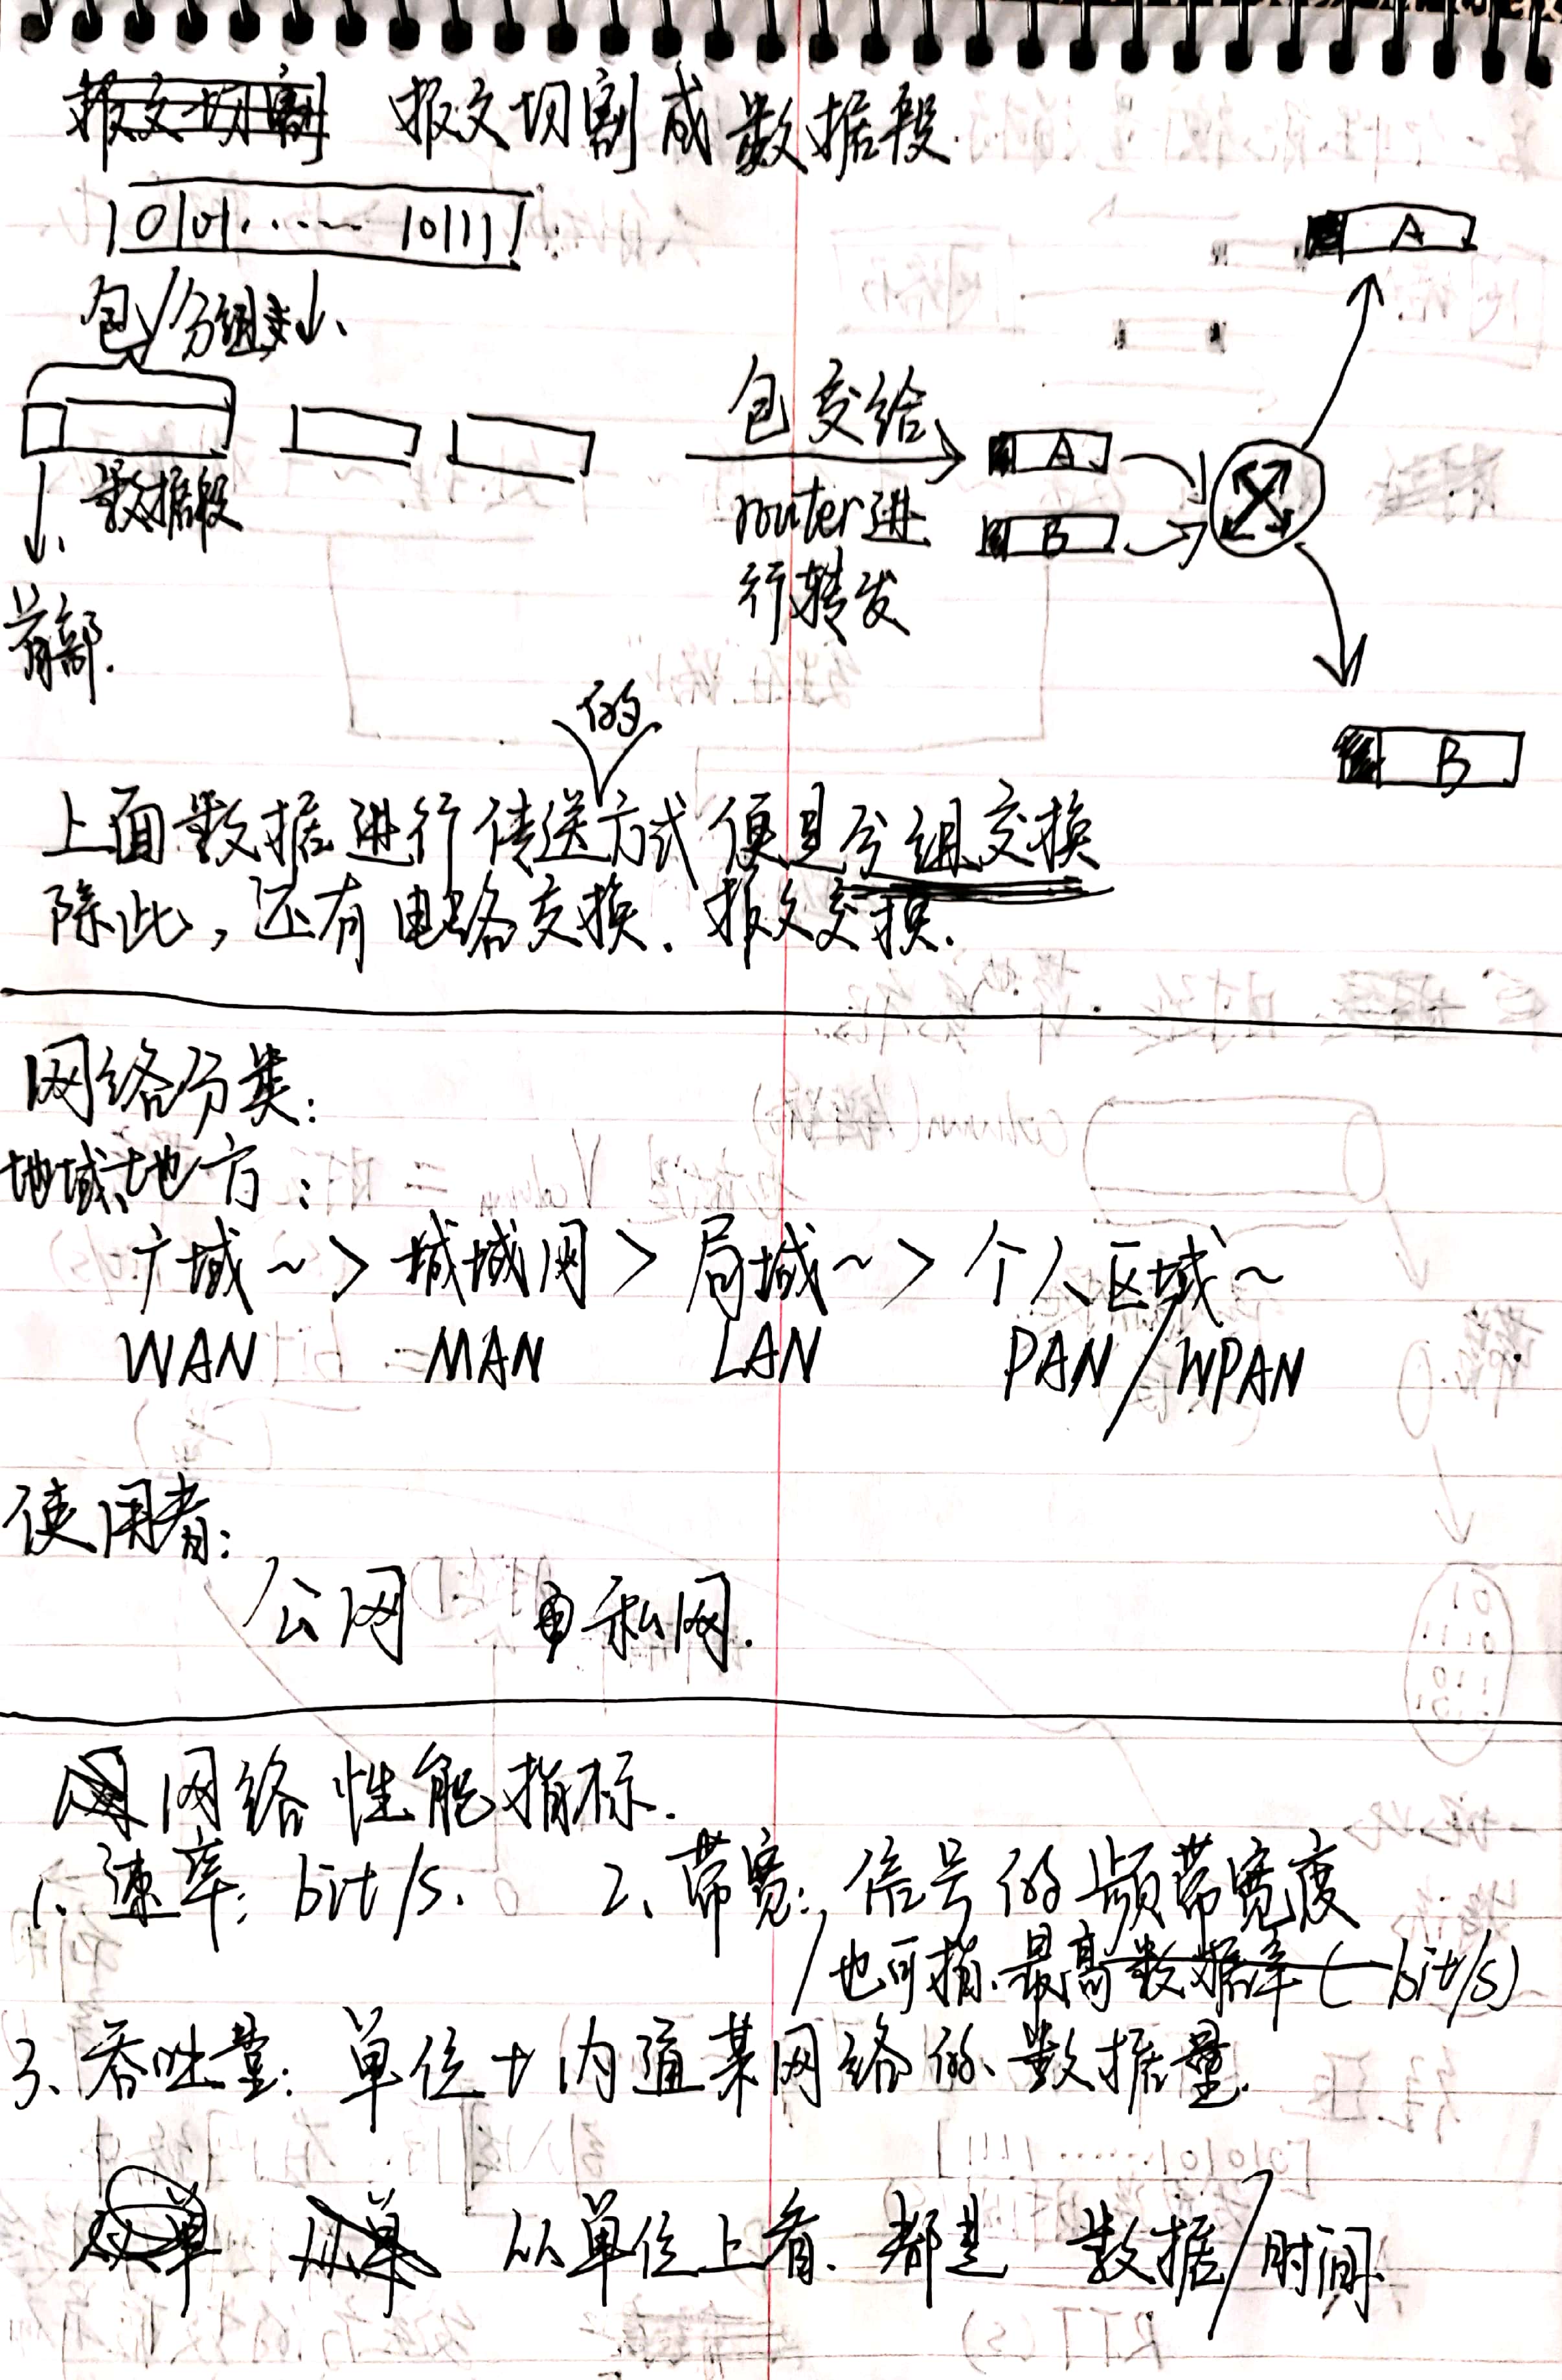 报文切割成数据段.
10101...... 10111
包/分组
数据段
首部.
包交给
router进
行转发
A
B
A
B
的
上面数据进行传送方式便是分组交换
除此，还有电路交换、报文交换.
网络分类:
地域、地方:
广域~ > 城域网 > 局域~ > 个人区域~
WAN MAN LAN PAN/WPAN
使用者:
公网 私网.
网络性能指标.
1、速率: bit/s. 2、带宽: 信号的频带宽度
也可指、最高数据率(bit/s)
3、吞吐量: 单位t内通某网络的、数据量.
从单位上看、都是 数据/时间.